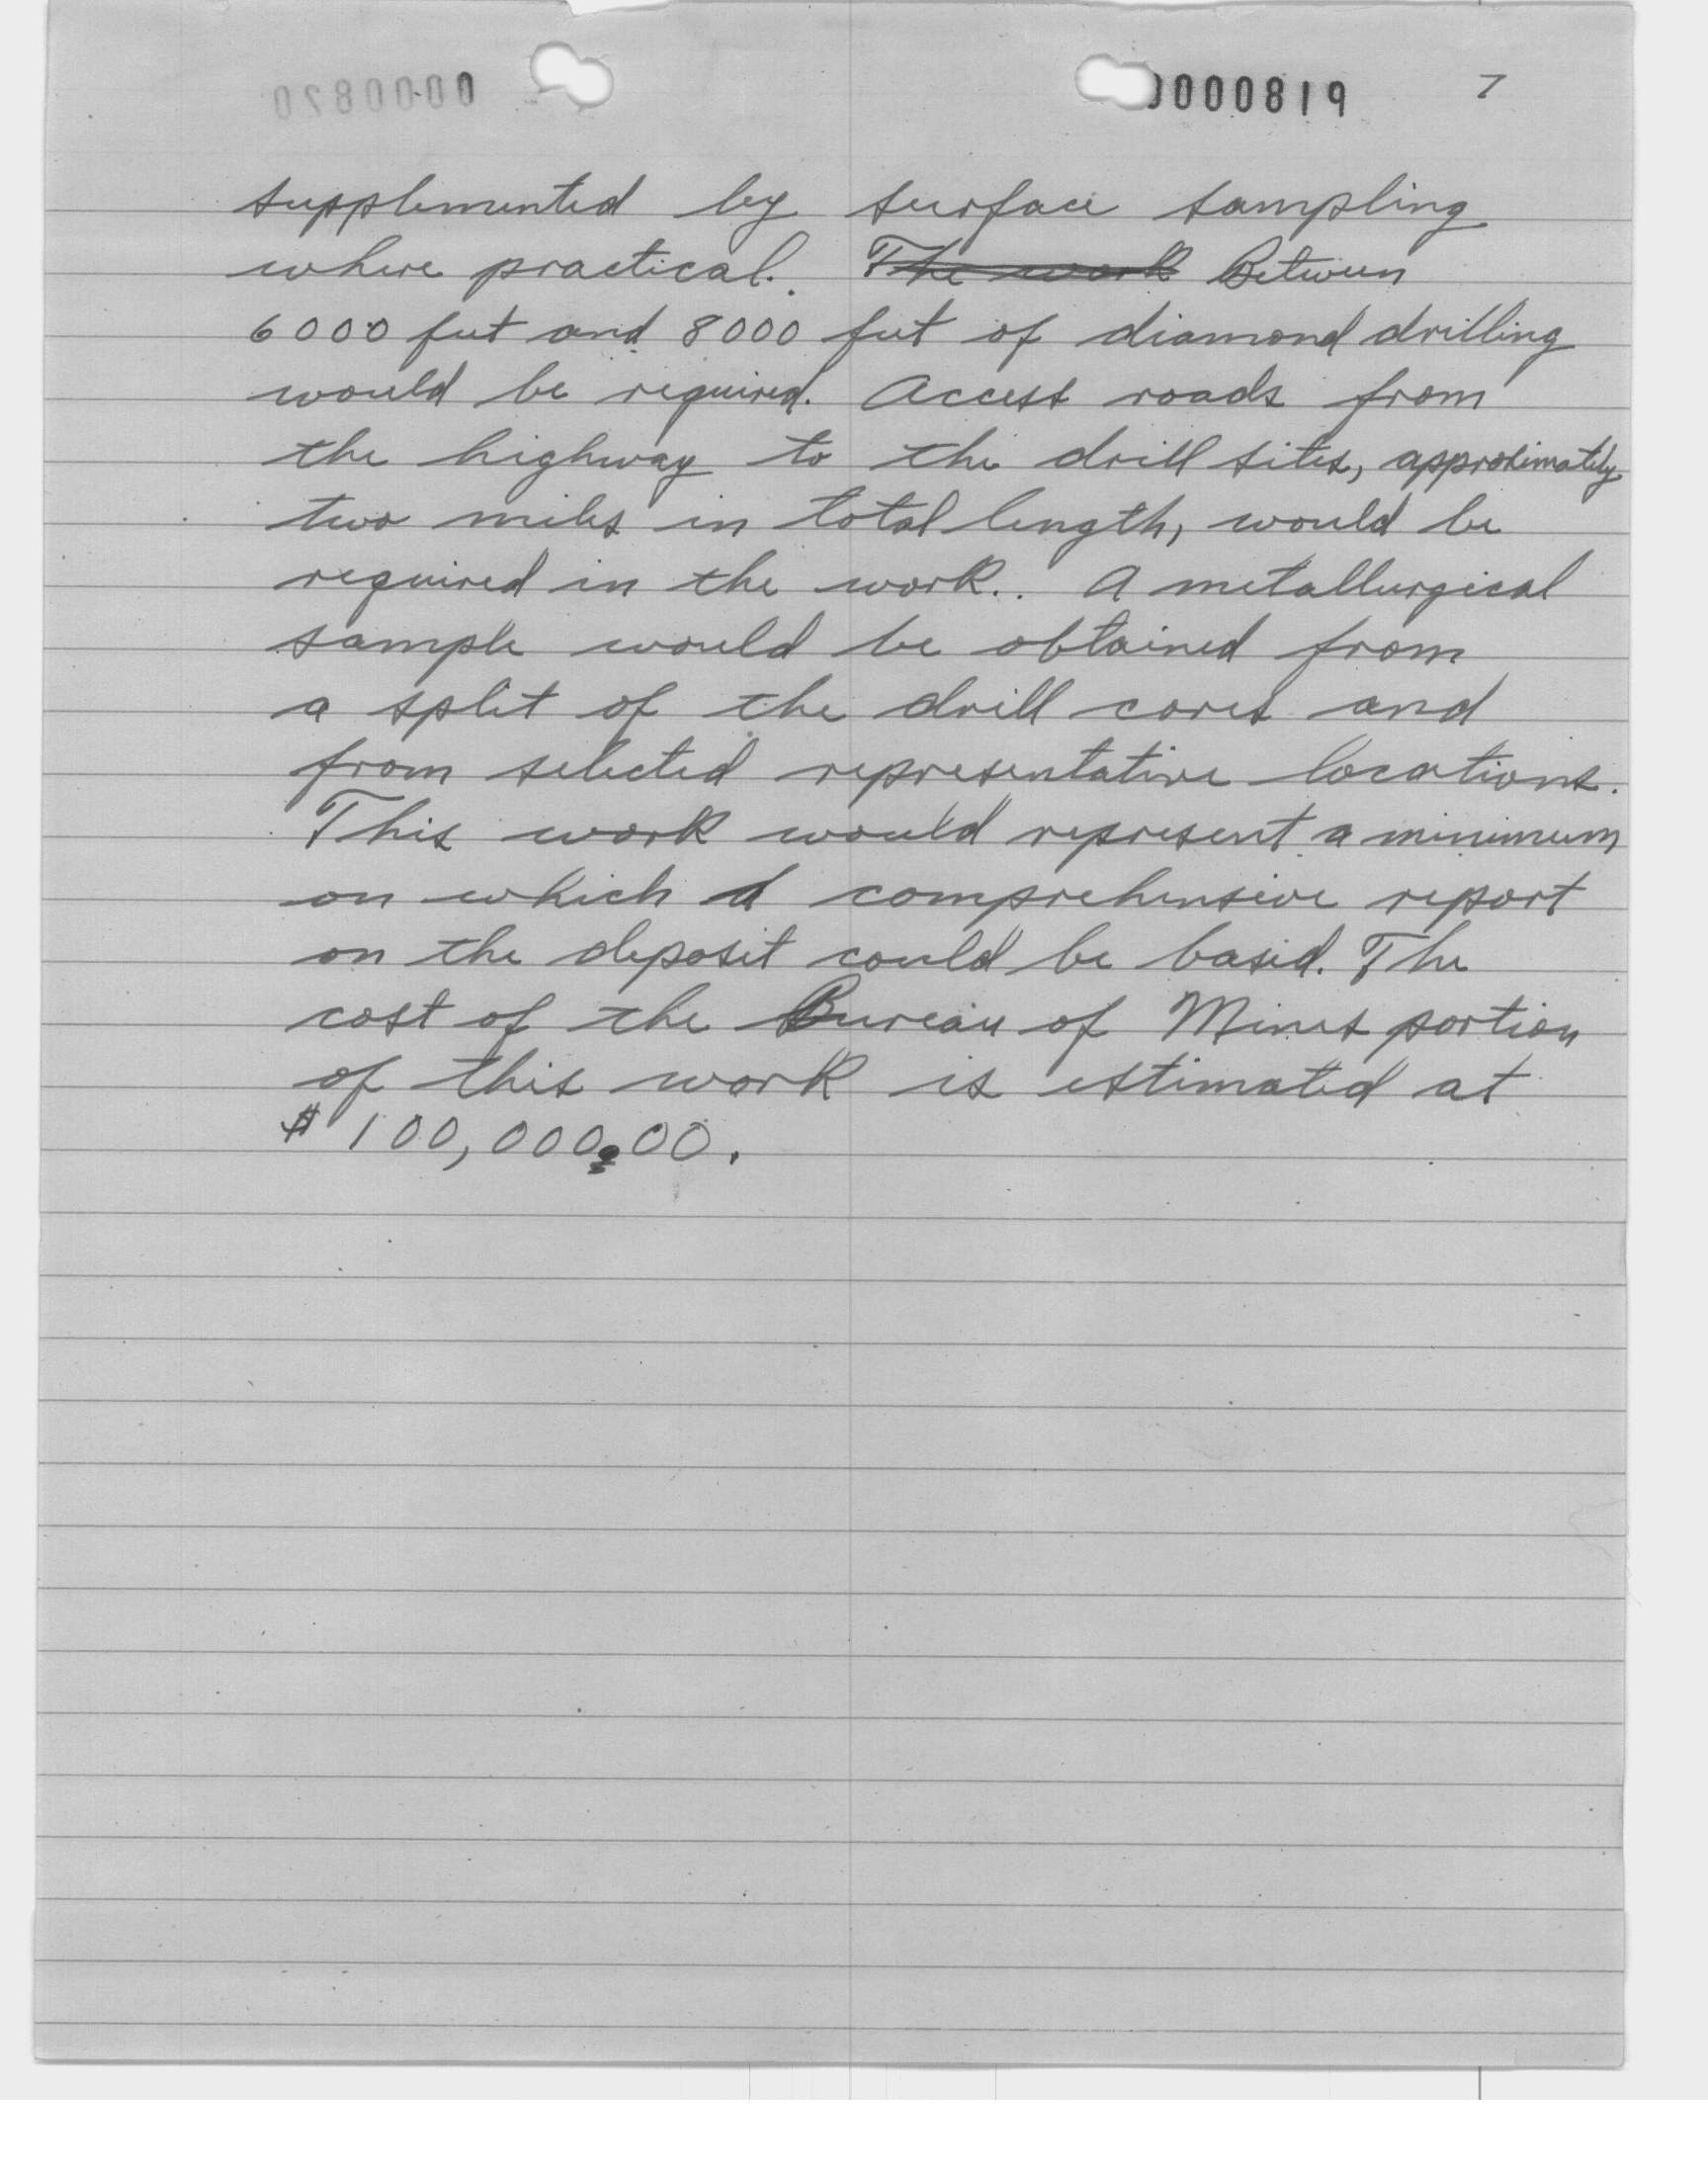 0000820
0000819 7
supplemented by surface sampling
where practical. The work Between
6000 feet and 8000 feet of diamond drilling
would be required. Access roads from
the highway to the drill sites, approximately
two miles in total length, would be
required in the work.. A metallurgical
sample would be obtained from
a split of the drill cores and
from selected representative locations.
This work would represent a minimum
on which a comprehensive report
on the deposit could be based. The
cost of the Bureau of Mines portion
of this work is estimated at
$ 100,000.00.